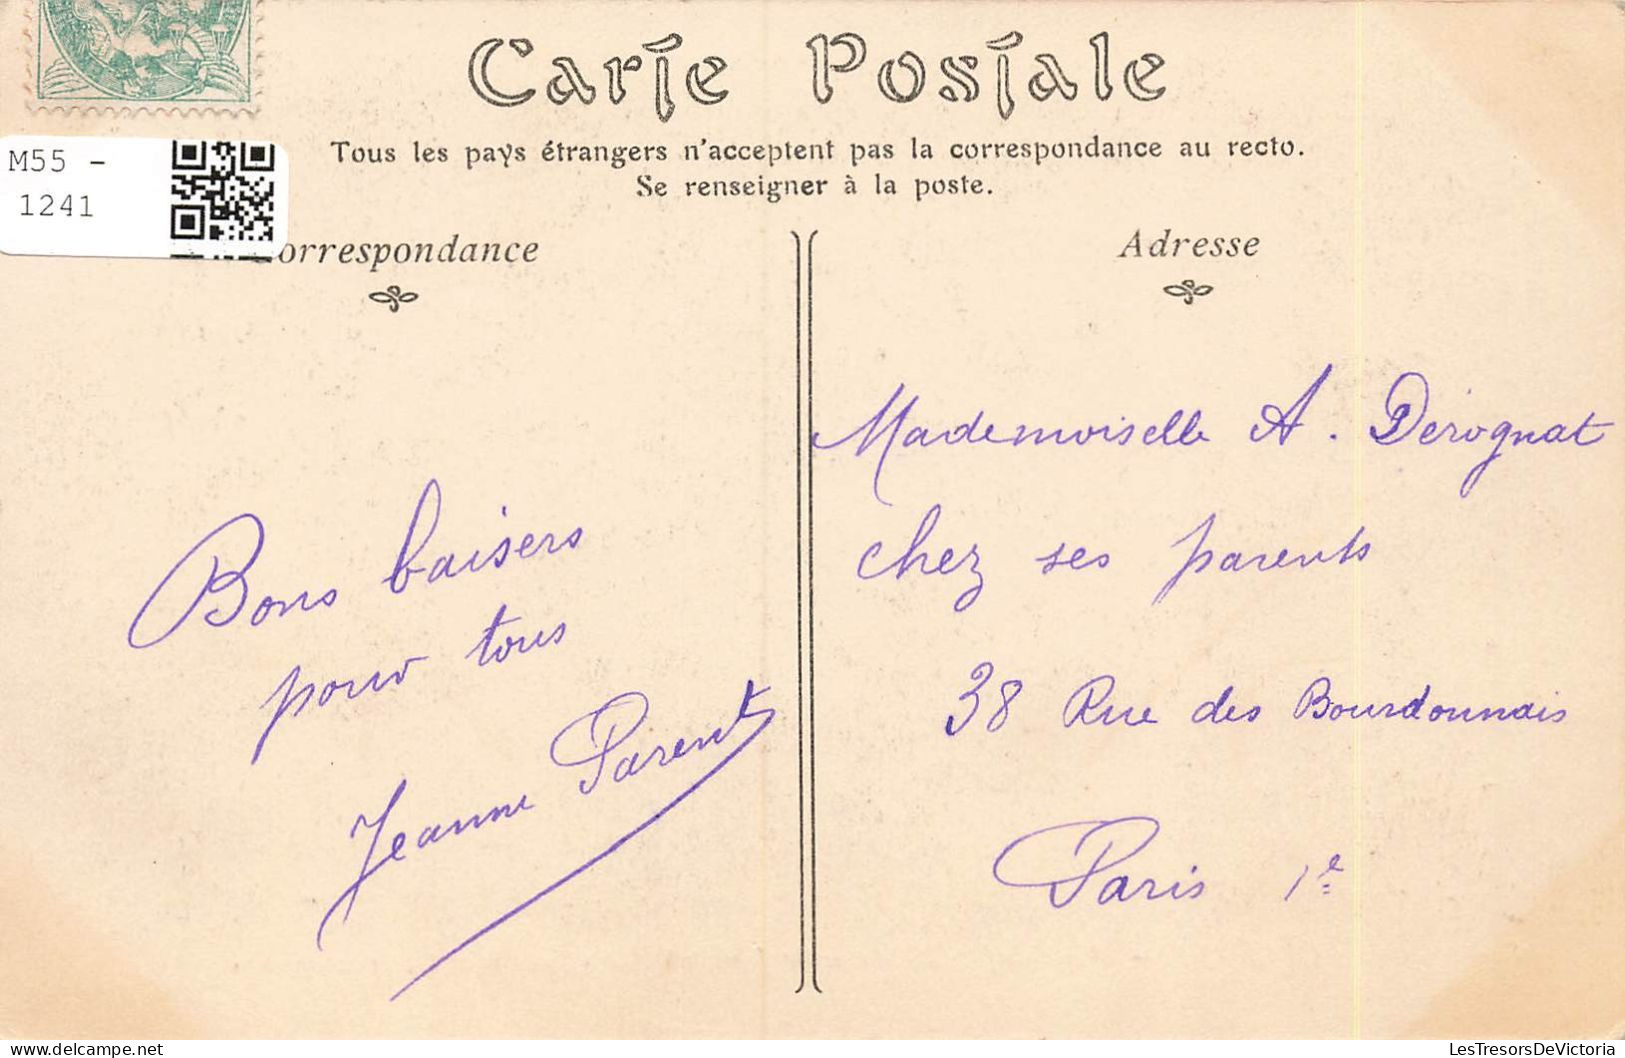 Carte Postale
Tous les pays étrangers n'acceptent pas la correspondance au recto.
Se renseigner à la poste.
M55 -
1241
orrespondance
Adresse
Bons baisers
pour tous
Jeanne Parent
Mademoiselle A. Dérognat
chez ses parents
38 Rue des Bourdonnais
Paris 1e
LesTresorsDeVictoria